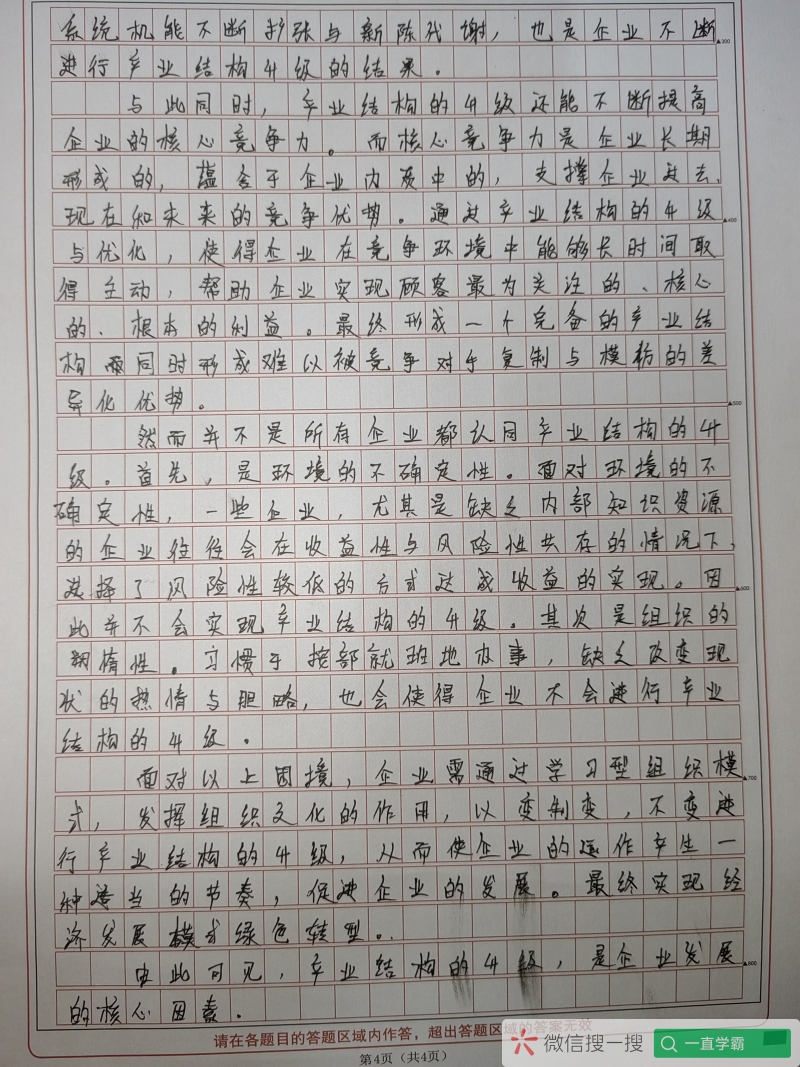 系统机能不断扩张与新陈代谢，也是企业不断
▲300
进行产业结构升级的结果。
与此同时，产业结构的升级还能不断提高
企业的核心竞争力。而核心竞争力是企业长期
形成的，蕴含于企业内质中的，支撑企业过去、
现在和未来的竞争优势。通过产业结构的升级
▲400
与优化，使得企业在竞争环境中能够长时间取
得主动，帮助企业实现顾客最为关注的、核心
的、根本的利益。最终形成一个完备的产业结
构而同时形成难以被竞争对手复制与模仿的差
异化优势。
▲500
然而并不是所有企业都认同产业结构的升
级。首先，是环境的不确定性。面对环境的不
确定性，一些企业，尤其是缺乏内部知识资源
的企业往往会在收益性与风险性共存的情况下，
选择了风险性较低的方式达成收益的实现。因
▲600
此并不会实现产业结构的升级。其次是组织的
惰性。习惯于按部就班地办事，缺乏改变现
状的热情与胆略，也会使得企业不会进行产业
结构的升级。
面对以上困境，企业需通过学习型组织模
▲700
式，发挥组织文化的作用，以变制变，不变进
行产业结构的升级，从而使企业的运作产生一
种适当的节奏，促进企业的发展。最终实现经
济发展模式绿色转型。
由此可见，产业结构的升级，是企业发展
▲800
的核心因素。
请在各题目的答题区域内作答，超出答题区域的答案无效
第4页（共4页）
微信搜一搜
一直学霸